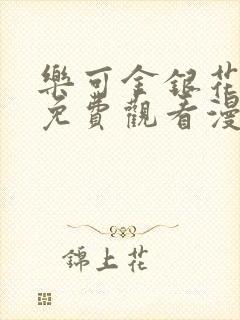 樂可金銀花
免費觀看漫
錦上花